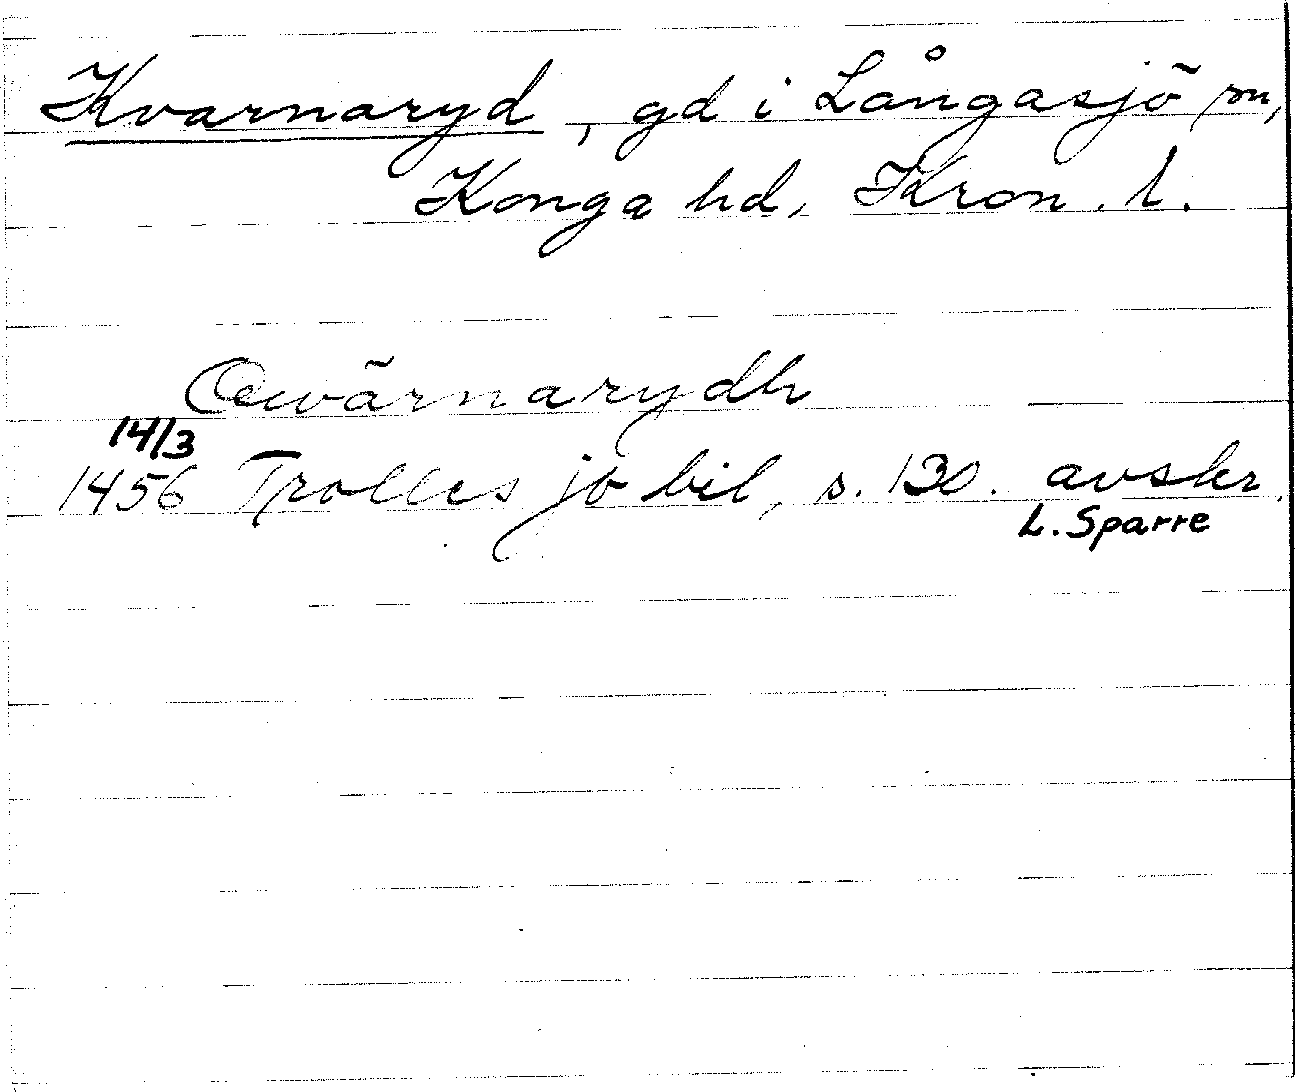 Kvarnaryd, gd i Långasjö sn,
Konga hd, Kron. l.
Qwärnarydh
14/3
1456 Trolles jo bil, s. 130. avskr.
L. Sparre